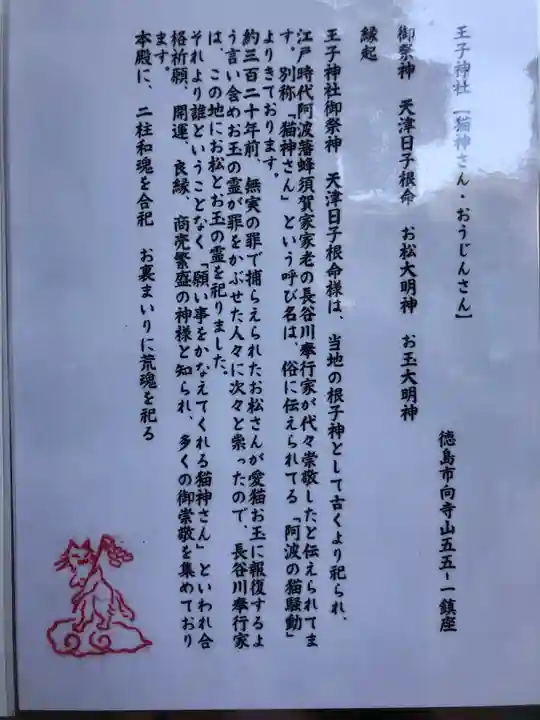 王子神社【猫神さん・おうじんさん】
徳島市向寺山五五ー一鎮座
御祭神　天津日子根命　お松大明神　お玉大明神
縁起
王子神社御祭神　天津日子根命様は、当地の根子神として古くより祀られ、
江戸時代阿波藩蜂須賀家家老の長谷川奉行家が代々崇敬したと伝えられてま
す。別称「猫神さん」という呼び名は、俗に伝えられてる「阿波の猫騒動」
よりきております。
約三百二十年前、無実の罪で捕らえられたお松さんが愛猫お玉に報復するよ
う言い含めお玉の霊が罪をかぶせた人々に次々と祟ったので、長谷川奉行家
は、この地にお松とお玉の霊を祀りました。
それより誰ということなく、「願い事をかなえてくれる猫神さん」といわれ合
格祈願、開運、良縁、商売繁盛の神様と知られ、多くの御崇敬を集めており
ます。
本殿に、二柱和魂を合祀　お裏まいりに荒魂を祀る